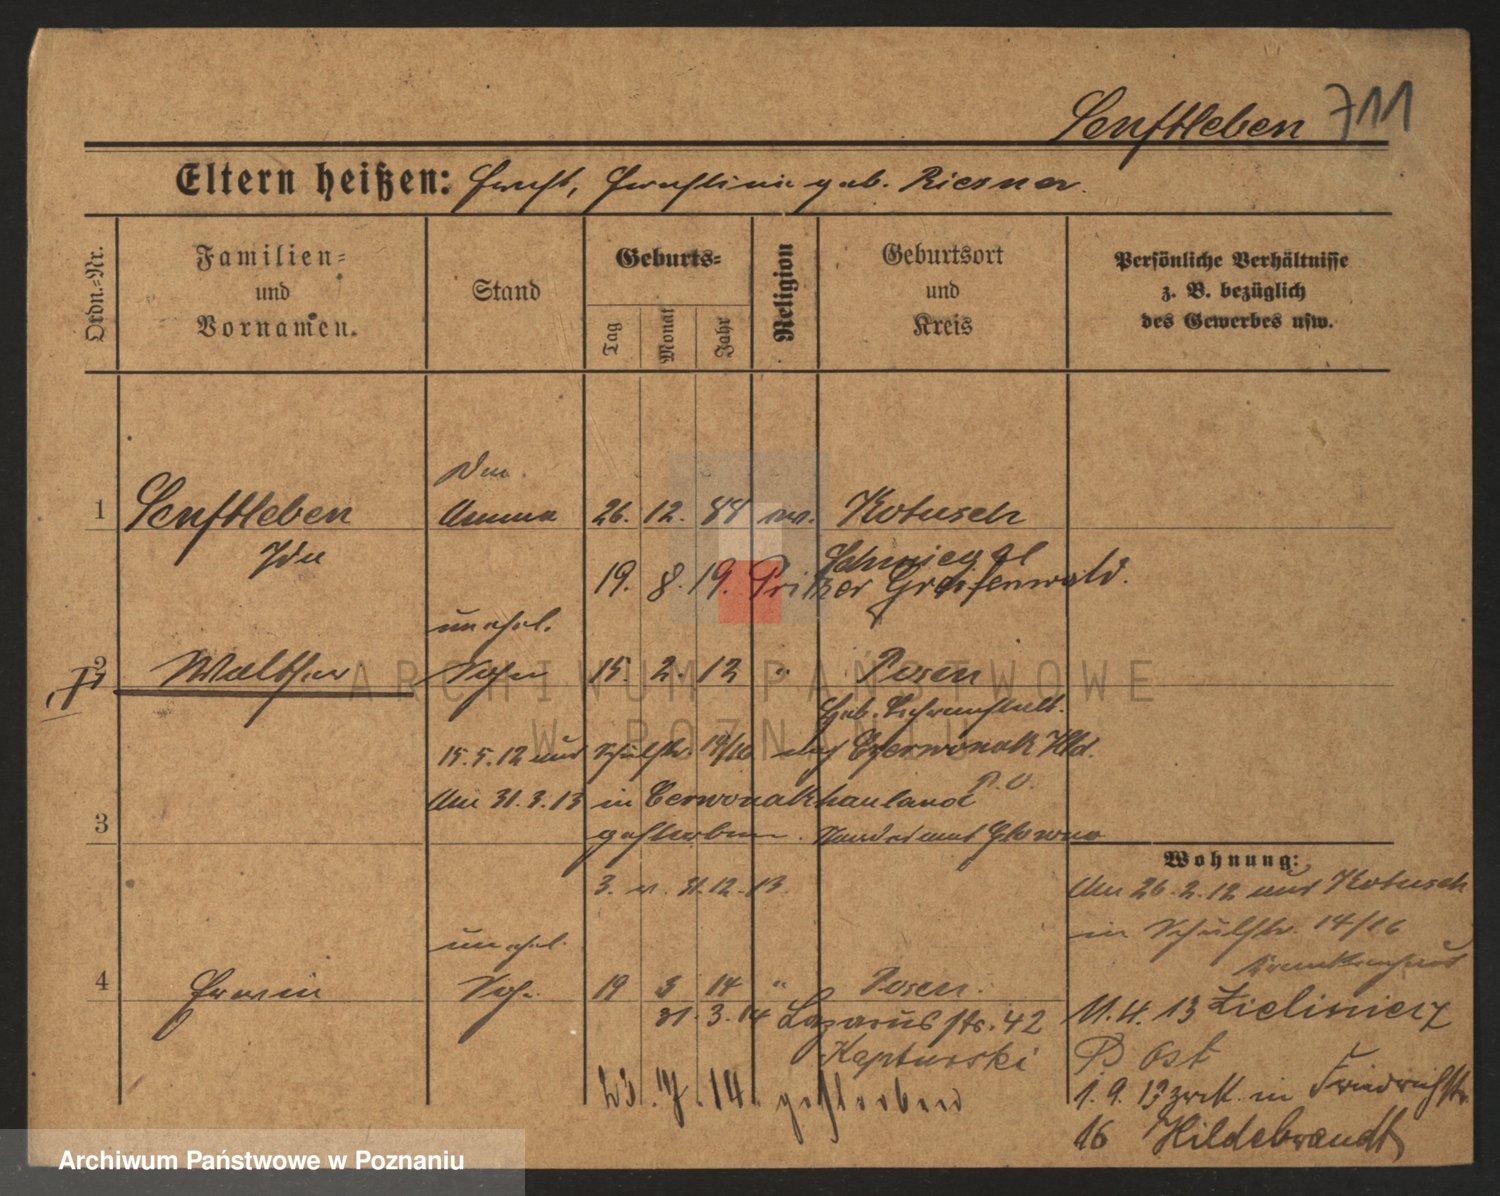 Senftleben 711
Eltern heißen: Ernst, Ernstine geb. Riesner.
Ordn.-Nr.
Familien-
und
Vornamen.
Stand
Geburts-
Tag
Monat
Jahr
Religion
Geburtsort
und
Kreis
Persönliche Verhältnisse
z. B. bezüglich
des Gewerbes usw.
1 Senftleben Amme 26. 12. 88 ev. Kotusch
Ida
Schmiegel
19. 8. 19. Greifenwald.
unehel.
2 Walther Sohn 15. 2. 12 " Posen
15. 5. 12 Schulstr. Czerwonak Hld.
P. O.
Am 31. 3. 13 in Cerwonakhauland
3 gestorben. Standesamt Glowno
3. v. 31. 12. 13.
Wohnung:
Am 26. 2. 12 aus Kotusch
in Schulstr. 14/16
Krankenhaus
unehel.
4 Erwin Sohn 19 3 14 " Posen.
31. 3. 14 Lazarusstr. 42
Kapturski
23. 7. 14. gestorben
11. 4. 13 Zieliniec
P Ost
1. 9. 13 zrck. in Friedrichstr.
16 Hildebrandt
ARCHIWUM PAŃSTWOWE
W POZNANIU
Archiwum Państwowe w Poznaniu